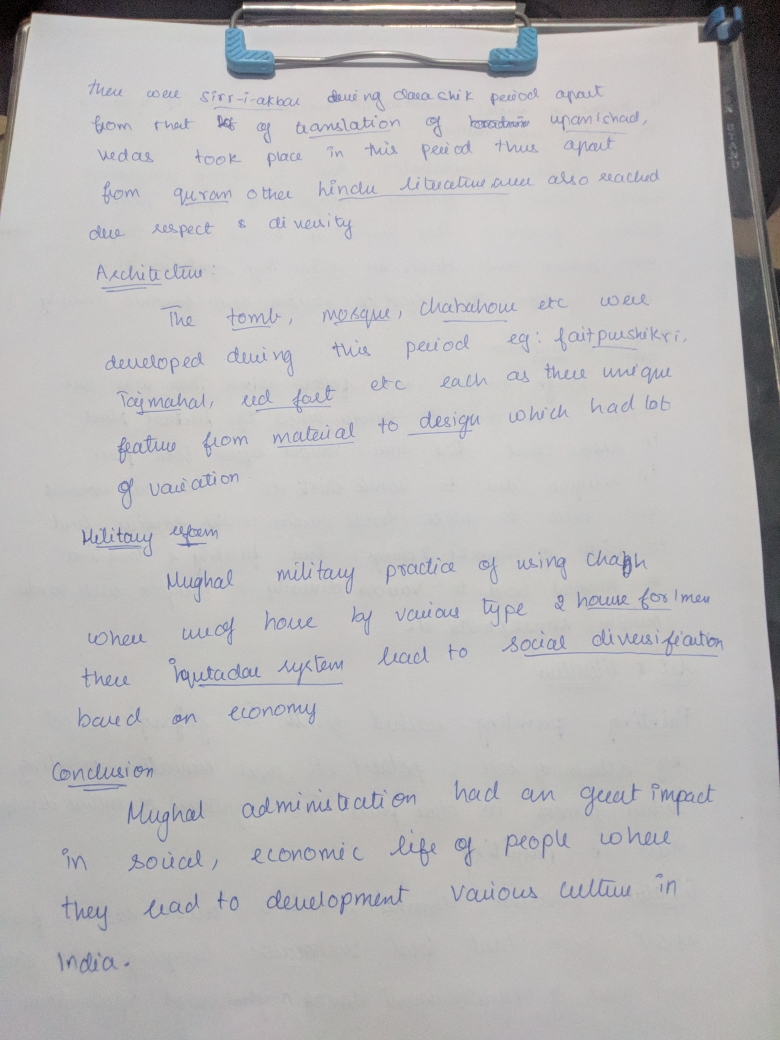 there were sirr-i-akbar during dara shik period apart
from that of translation of upanishad,
vedas took place in this period thus apart
from quran other hindu literature were also reached
due respect & diversity
Architecture:
The tomb, mosque, etc were
developed during this period eg: faitpurshikri,
Tajmahal, red fort etc each as there unique
feature from material to design which had lot
of variation
Military reform
Mughal military practice of using
where use of horse by various type 2 horse for 1 men
there iqutadar system lead to social diversification
based on economy
Conclusion
Mughal administration had an great impact
in social, economic life of people where
they lead to development various culture in
India.